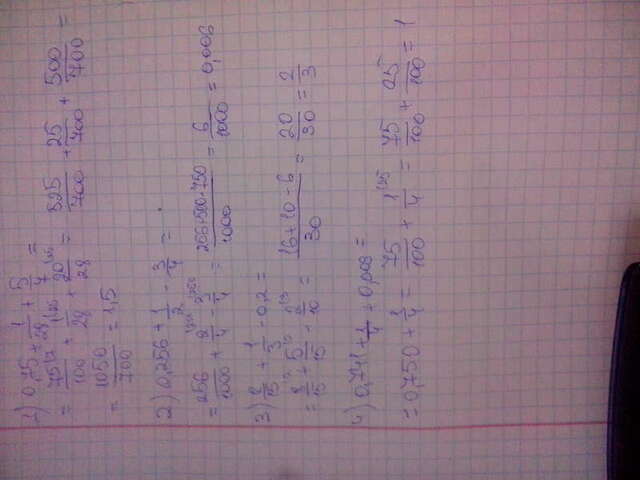 1) 0,75 + 1/28 + 5/7 =
= 75^(7/100 + 1^(25/28 + 20^(25/28 = 525/700 + 25/700 + 500/700 =
= 1050/700 = 1,5
2) 0,256 + 1/2 - 3/4 =
= 256/1000 + 2^(250/4 - 3^(250/4 = 256+500-750/1000 = 6/1000 = 0,006
3) 8/15 + 1/3 - 0,2 =
= 8/15 + 5/15 - 2^(3/10 = 16+10-6/30 = 20/30 = 2/3
4) 0,741 + 1/4 + 0,009 =
= 0,750 + 1/4 = 75/100 + 1^(25/4 = 75/100 + 25/100 = 1